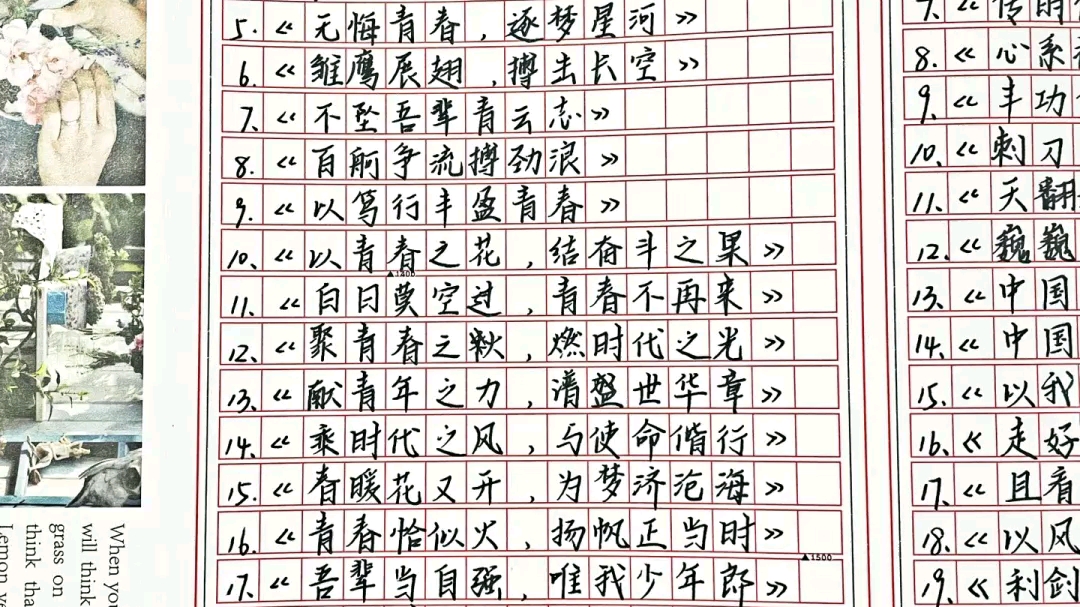 5.《无悔青春，逐梦星河》
6.《雏鹰展翅，搏击长空》
7.《不坠吾辈青云志》
8.《百舸争流搏劲浪》
9.《以笃行丰盈青春》
10、《以青春之花，结奋斗之果》
▲1400
11、《白日莫空过，青春不再来》
12、《聚青春之焱，燃时代之光》
13、《献青年之力，谱盛世华章》
14、《乘时代之风，与使命偕行》
15、《春暖花又开，为梦济沧海》
16、《青春恰似火，扬帆正当时》
▲1500
17、《吾辈当自强，唯我少年郎》
8.《心系
9.《丰功
10、《刺刀
11、《天翻
12、《巍巍
13、《中国
14、《中国
15、《以我
16、《走好
17、《且看
18、《以风
19、《利剑
When you
will think
grass on
think tha
Lemon